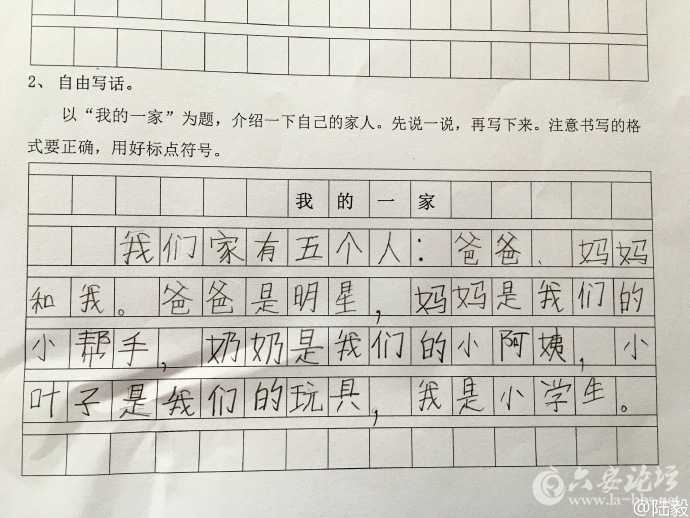 2、自由写话。
以“我的一家”为题，介绍一下自己的家人。先说一说，再写下来。注意书写的格
式要正确，用好标点符号。
我的一家
我们家有五个人：爸爸、妈妈
和我。爸爸是明星，妈妈是我们的
小帮手，奶奶是我们的小阿姨，小
叶子是我们的玩具，我是小学生。
六安论坛
www.la-bbs.net
@陆毅